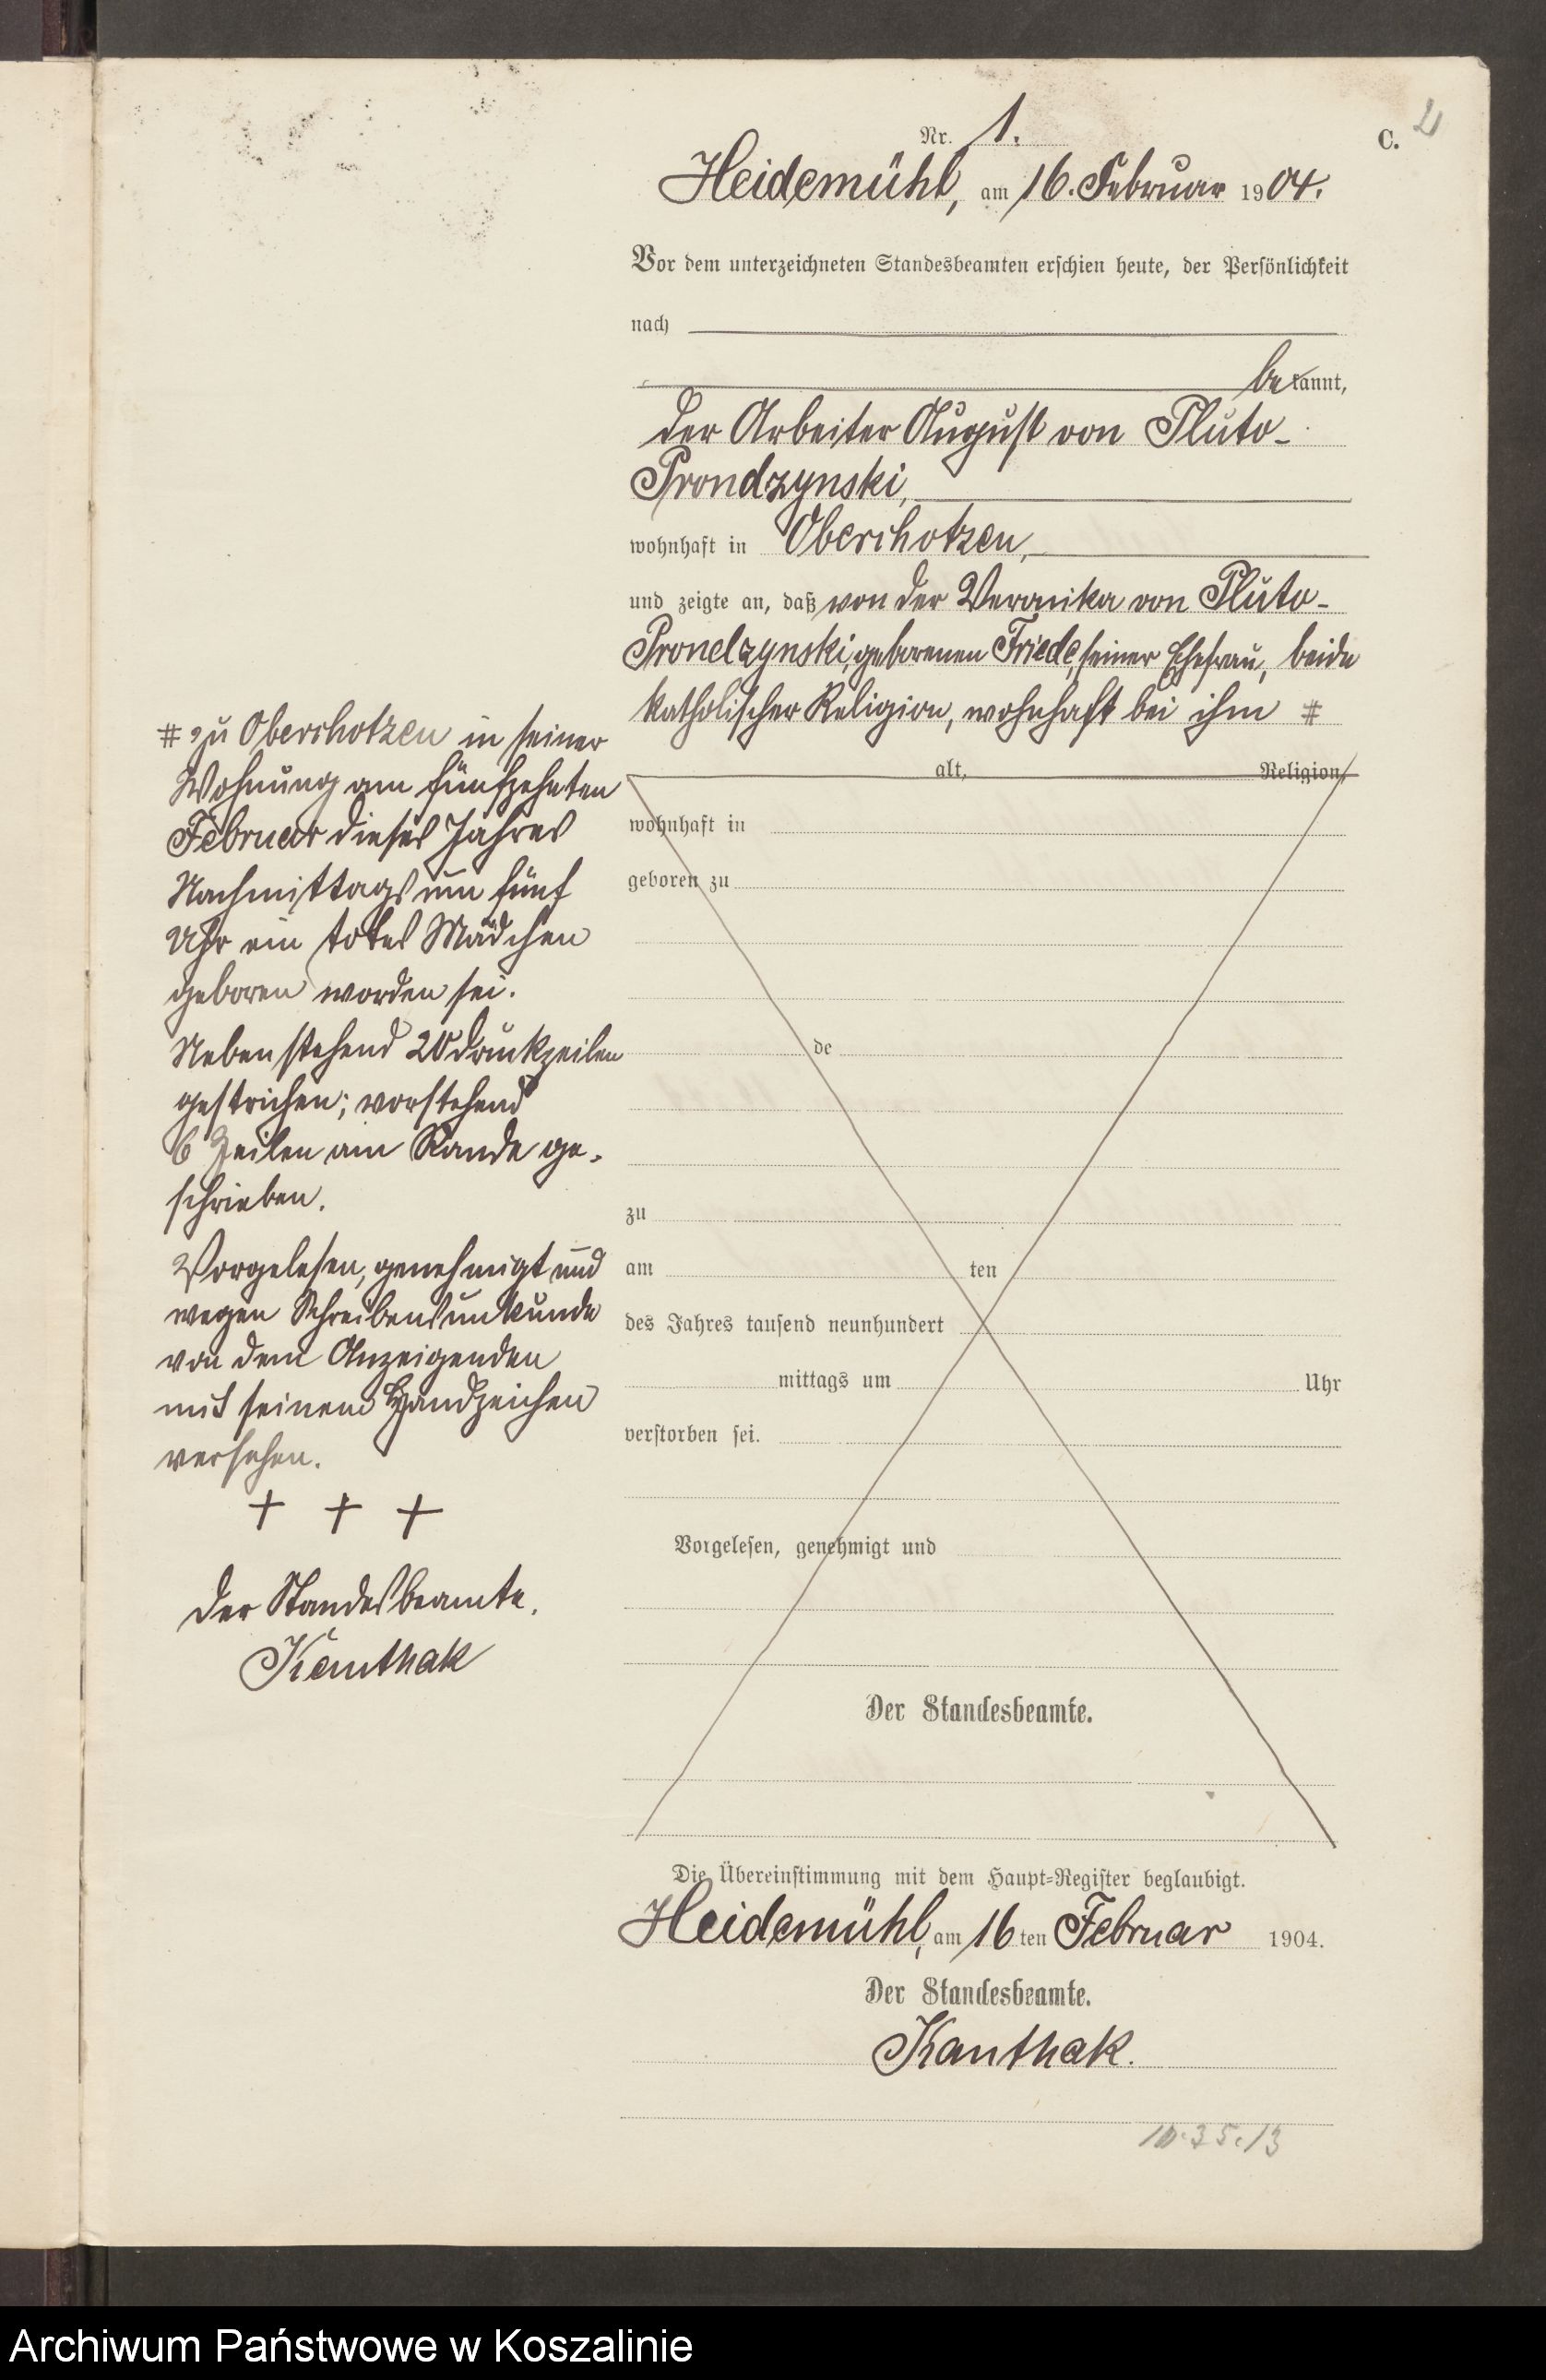 Nr. 1.
C. 2
Heidemühl, am 16. Februar 1904.
Vor dem unterzeichneten Standesbeamten erschien heute, der Persönlichkeit
nach
bekannt,
der Arbeiter August von Pluto-
Prondzynski,
wohnhaft in Oberchotzen,
und zeigte an, daß von der Veronika von Pluto-
Prondzynski, geborenen Friede, seiner Ehefrau, beide
katholischer Religion, wohnhaft bei ihm #
# zu Oberchotzen in seiner
Wohnung am fünfzehnten
Februar dieses Jahres
Nachmittags um fünf
Uhr ein totes Mädchen
geboren worden sei.
Nebenstehend 20 Druckzeilen
gestrichen; vorstehend
6 Zeilen am Rande ge-
schrieben.
Vorgelesen, genehmigt und
wegen Schreibensunkunde
von dem Anzeigenden
mit seinem Handzeichen
versehen.
+ + +
Der Standesbeamte.
Kanthak
alt, Religion,
wohnhaft in
geboren zu
de
zu
am ten
des Jahres tausend neunhundert
mittags um Uhr
verstorben sei.
Vorgelesen, genehmigt und
Der Standesbeamte.
Die Übereinstimmung mit dem Haupt-Register beglaubigt.
Heidemühl, am 16ten Februar 1904.
Der Standesbeamte.
Kanthak.
Archiwum Państwowe w Koszalinie